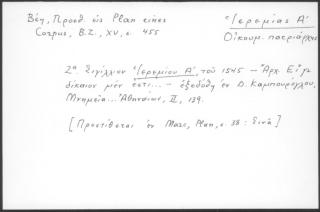 Βέη, Προσθ. εἰς Plan εἰκὼς
Corpus, B.Z., XV, σ. 455
Ἱερεμίας Α´
Οἰκουμ. πατριάρχης
Σιγίλλιον Ἱερεμίου Α´, τοῦ 1545 - Ἀρχ. Εἰ γὰρ
δίκαιον μὲν ἐστι... - ἐξεδόθη ἐν Δ. Καμπούρογλου,
Μνημεῖα... Ἀθηναίων, II, 139.
[Προστίθεται ἐν Marc, Plan, σ. 38 : Σινᾶ]